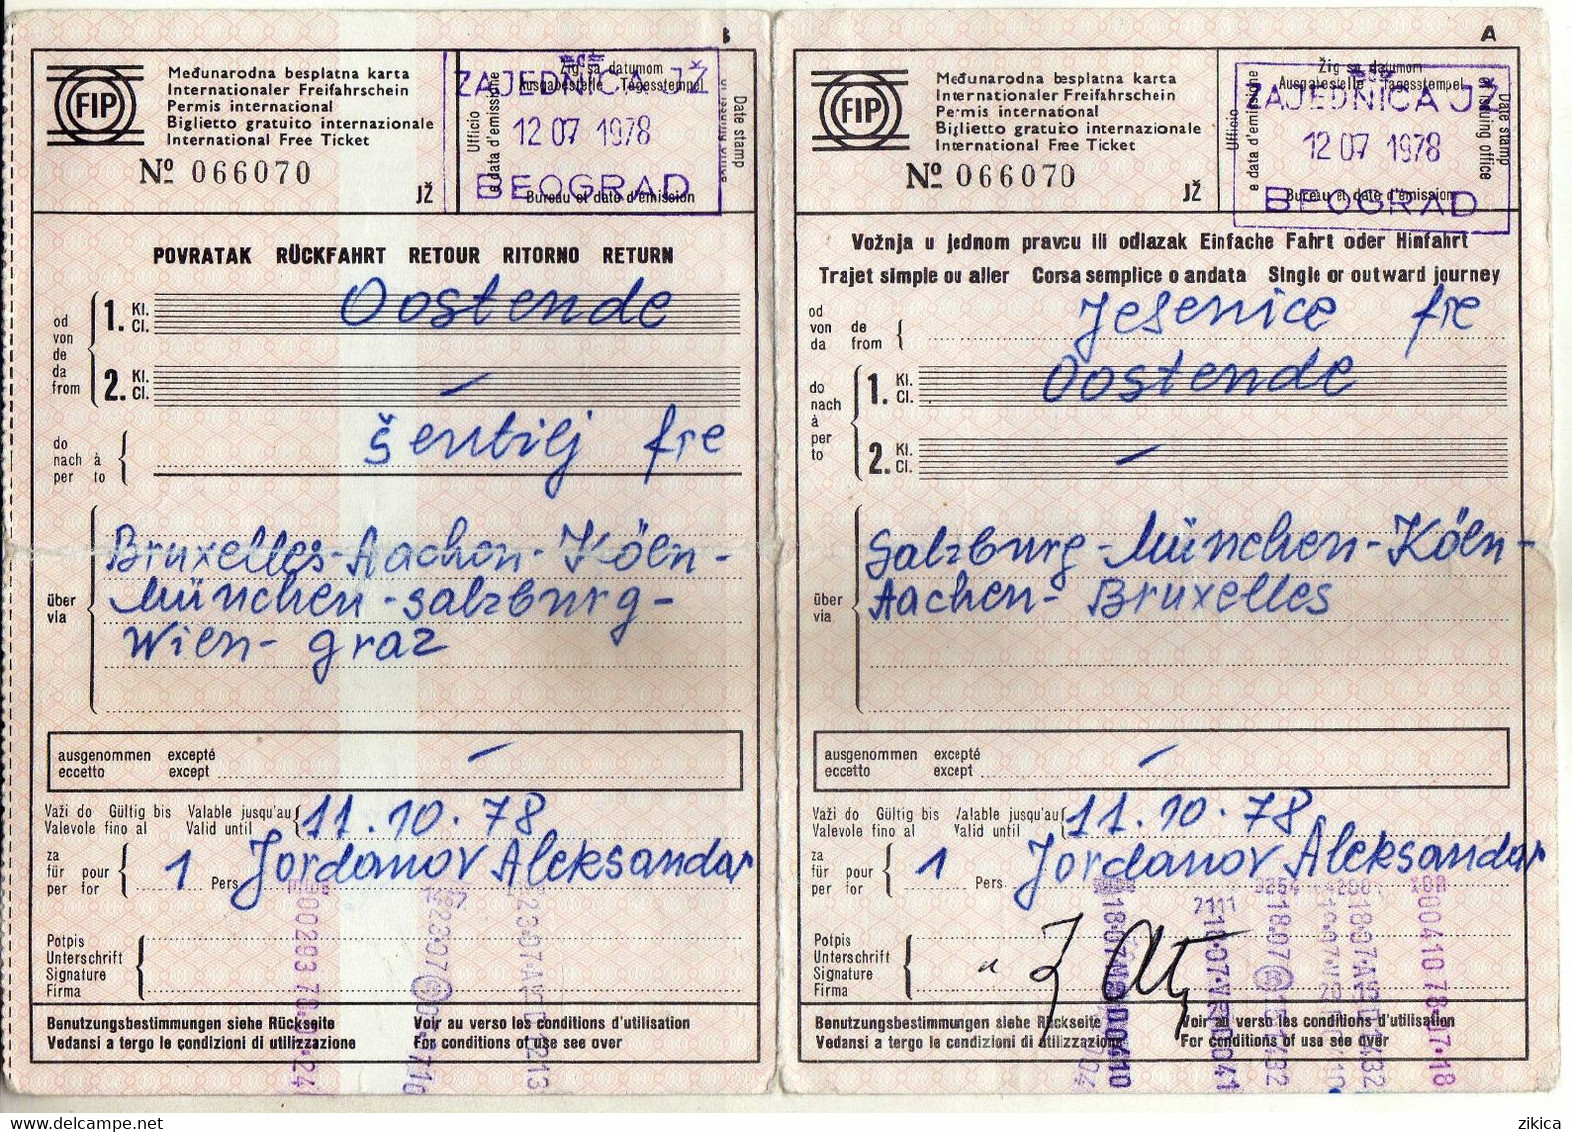 B
FIP
Međunarodna besplatna karta
Internationaler Freifahrschein
Permis international
Biglietto gratuito internazionale
International Free Ticket
Nº 066070
JŽ
Žig sa datumom
Ausgabestelle Tagesstempel
Ufficio
e data d'emissione
Date stamp
of issuing office
Bureau et date d'émission
ZAJEDNICA JŽ
12 07 1978
BEOGRAD
POVRATAK RÜCKFAHRT RETOUR RITORNO RETURN
od
von
de
da
from
1. Kl. Cl.
Oostende
2. Kl. Cl.
–
do
nach à
per to
Šentilj fre
über
via
Bruxelles-Aachen-Köln-
München-Salzburg-
Wien-Graz
ausgenommen excepté
eccetto except
–
Važi do Gültig bis Valable jusqu'au
Valevole fino al Valid until
11.10.78
za
für pour
per for
1 Pers
Jordanov Aleksandar
Potpis
Unterschrift
Signature
Firma
Benutzungsbestimmungen siehe Rückseite
Voir au verso les conditions d'utilisation
Vedansi a tergo le condizioni di utilizzazione
For conditions of use see over
A
FIP
Međunarodna besplatna karta
Internationaler Freifahrschein
Permis international
Biglietto gratuito internazionale
International Free Ticket
Nº 066070
JŽ
Žig sa datumom
Ausgabestelle Tagesstempel
Ufficio
e data d'emissione
Date stamp
of issuing office
Bureau et date d'émission
ZAJEDNICA JŽ
12 07 1978
BEOGRAD
Vožnja u jednom pravcu ili odlazak Einfache Fahrt oder Hinfahrt
Trajet simple ou aller Corsa semplice o andata Single or outward journey
od
von de
da from
Jesenice fre
do
nach
à
per
to
1. Kl. Cl.
Oostende
2. Kl. Cl.
–
über
via
Salzburg-München-Köln-
Aachen-Bruxelles
ausgenommen excepté
eccetto except
–
Važi do Gültig bis Valable jusqu'au
Valevole fino al Valid until
11.10.78
za
für pour
per for
1 Pers
Jordanov Aleksandar
Potpis
Unterschrift
Signature
Firma
Benutzungsbestimmungen siehe Rückseite
Voir au verso les conditions d'utilisation
Vedansi a tergo le condizioni di utilizzazione
For conditions of use see over
delcampe.net
zikica